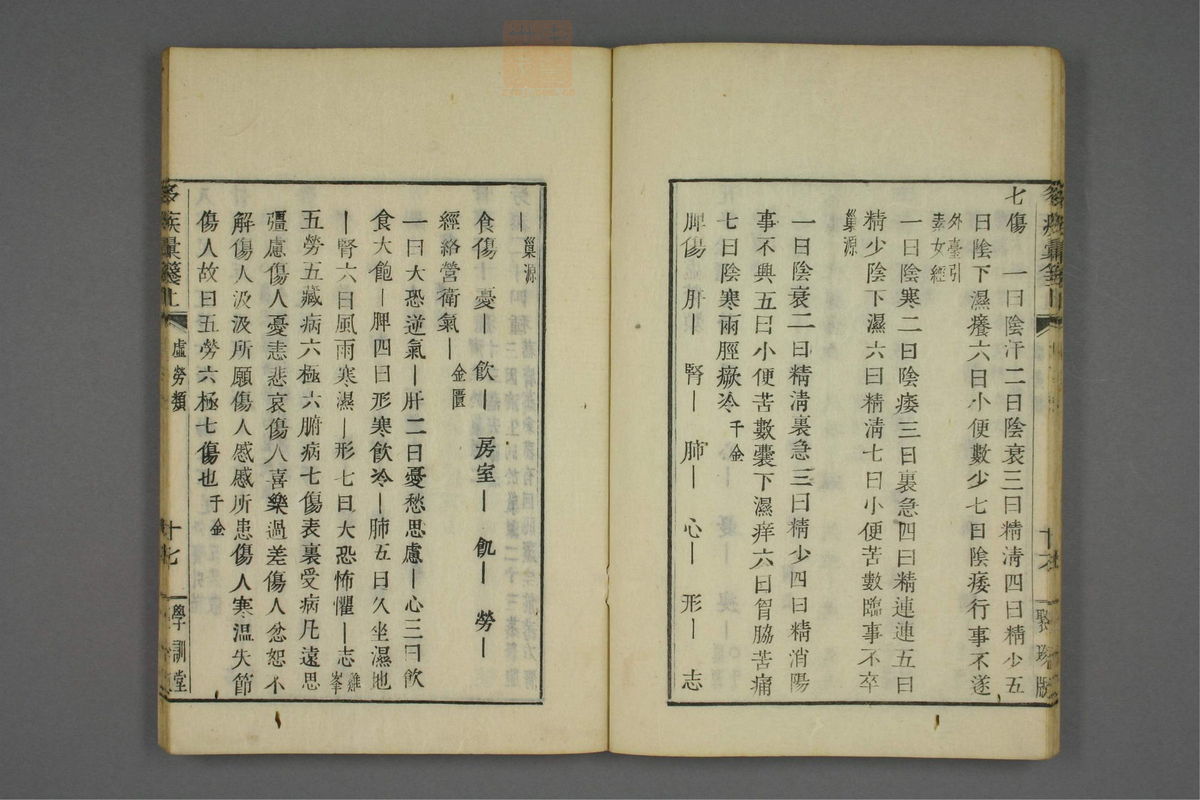 七傷　一曰陰汗二曰陰衰三曰精淸四曰精少五
曰陰下濕癢六曰小便數少七曰陰痿行事不遂
外臺引
素女經
一曰陰寒二曰陰痿三曰裏急四曰精連連五曰
精少陰下濕六曰精淸七曰小便苦數臨事不卒
巢源
一曰陰衰二曰精淸裏急三曰精少四曰精消陽
事不興五曰小便苦數囊下濕痒六曰胷脇苦痛
七曰陰寒兩脛厥冷 千金
脾傷 肝｜ 腎｜ 肺｜ 心｜ 形｜ 志
｜ 巢源
食傷 憂｜ 飮｜ 房室｜ 飢｜ 勞｜
經絡營衛氣｜ 金匱
一曰大恐逆氣｜肝二曰憂愁思慮｜心三曰飮
食大飽｜脾四曰形寒飮冷｜肺五曰久坐濕地
｜腎六曰風雨寒濕｜形七曰大恐怖懼｜志 雞峯
五勞五藏病六極六腑病七傷表裏受病凡遠思
彊慮傷人憂恚悲哀傷人喜樂過差傷人忿恕不
解傷人汲汲所願傷人慼慼所患傷人寒溫失節
傷人故曰五勞六極七傷也 千金
虛勞類
十七
學訓堂
聚珍版